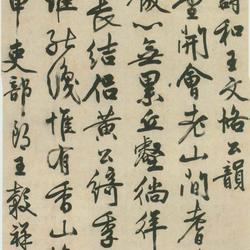 詩和王文恪公韻
開會老山間耆
心無累丘壑徜徉
長結侶黃公綺季
惟有香山
申吏部郎王穀祥